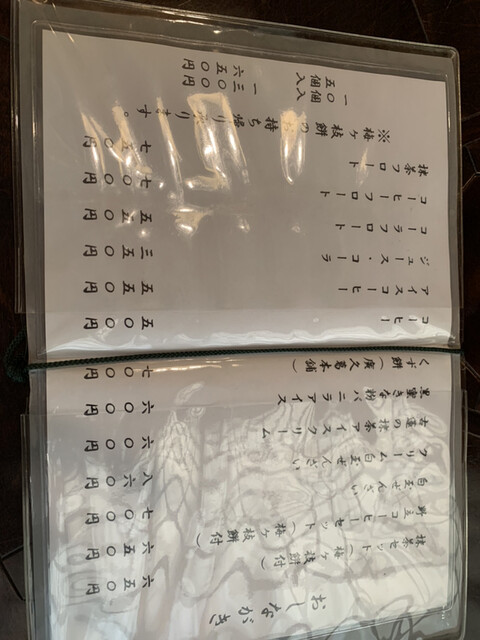 おしながき
抹茶セット（梅ヶ枝餅付） 六五〇円
野立コーヒーセット（梅ヶ枝餅付） 六五〇円
白玉ぜんざい 七〇〇円
クリーム白玉ぜんざい 八六〇円
古蓮の抹茶アイスクリーム 六〇〇円
黒蜜きな粉バニラアイス 六〇〇円
くず餅（廣久葛本舗） 七〇〇円
コーヒー 五〇〇円
アイスコーヒー 五五〇円
ジュース・コーラ 三五〇円
コーラフロート 五五〇円
コーヒーフロート 七〇〇円
抹茶フロート 七五〇円
※梅ヶ枝餅の持ち帰り ります。
一〇個入 一三〇〇円
五個入 六五〇円